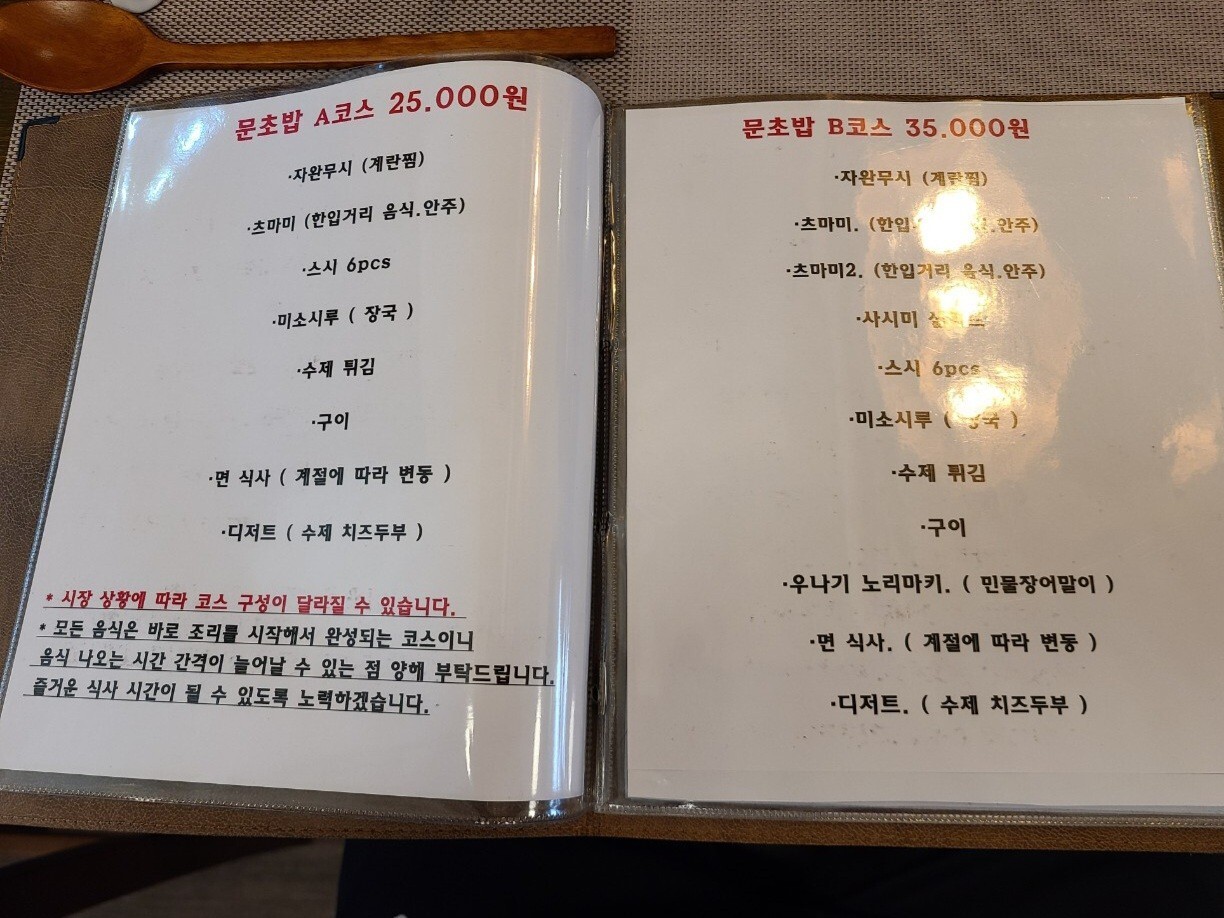 문초밥 A코스 25.000원
·자완무시 (계란찜)
·츠마미 (한입거리 음식.안주)
·스시 6pcs
·미소시루 ( 장국 )
·수제 튀김
·구이
·면 식사 ( 계절에 따라 변동 )
·디저트 ( 수제 치즈두부 )
* 시장 상황에 따라 코스 구성이 달라질 수 있습니다.
* 모든 음식은 바로 조리를 시작해서 완성되는 코스이니
음식 나오는 시간 간격이 늘어날 수 있는 점 양해 부탁드립니다.
즐거운 식사 시간이 될 수 있도록 노력하겠습니다.
문초밥 B코스 35.000원
·자완무시 (계란찜)
·츠마미. (한입거리 음식.안주)
·츠마미2. (한입거리 음식.안주)
·사시미
·스시 6pcs
·미소시루 ( 장국 )
·수제 튀김
·구이
·우나기 노리마키. ( 민물장어말이 )
·면 식사. ( 계절에 따라 변동 )
·디저트. ( 수제 치즈두부 )